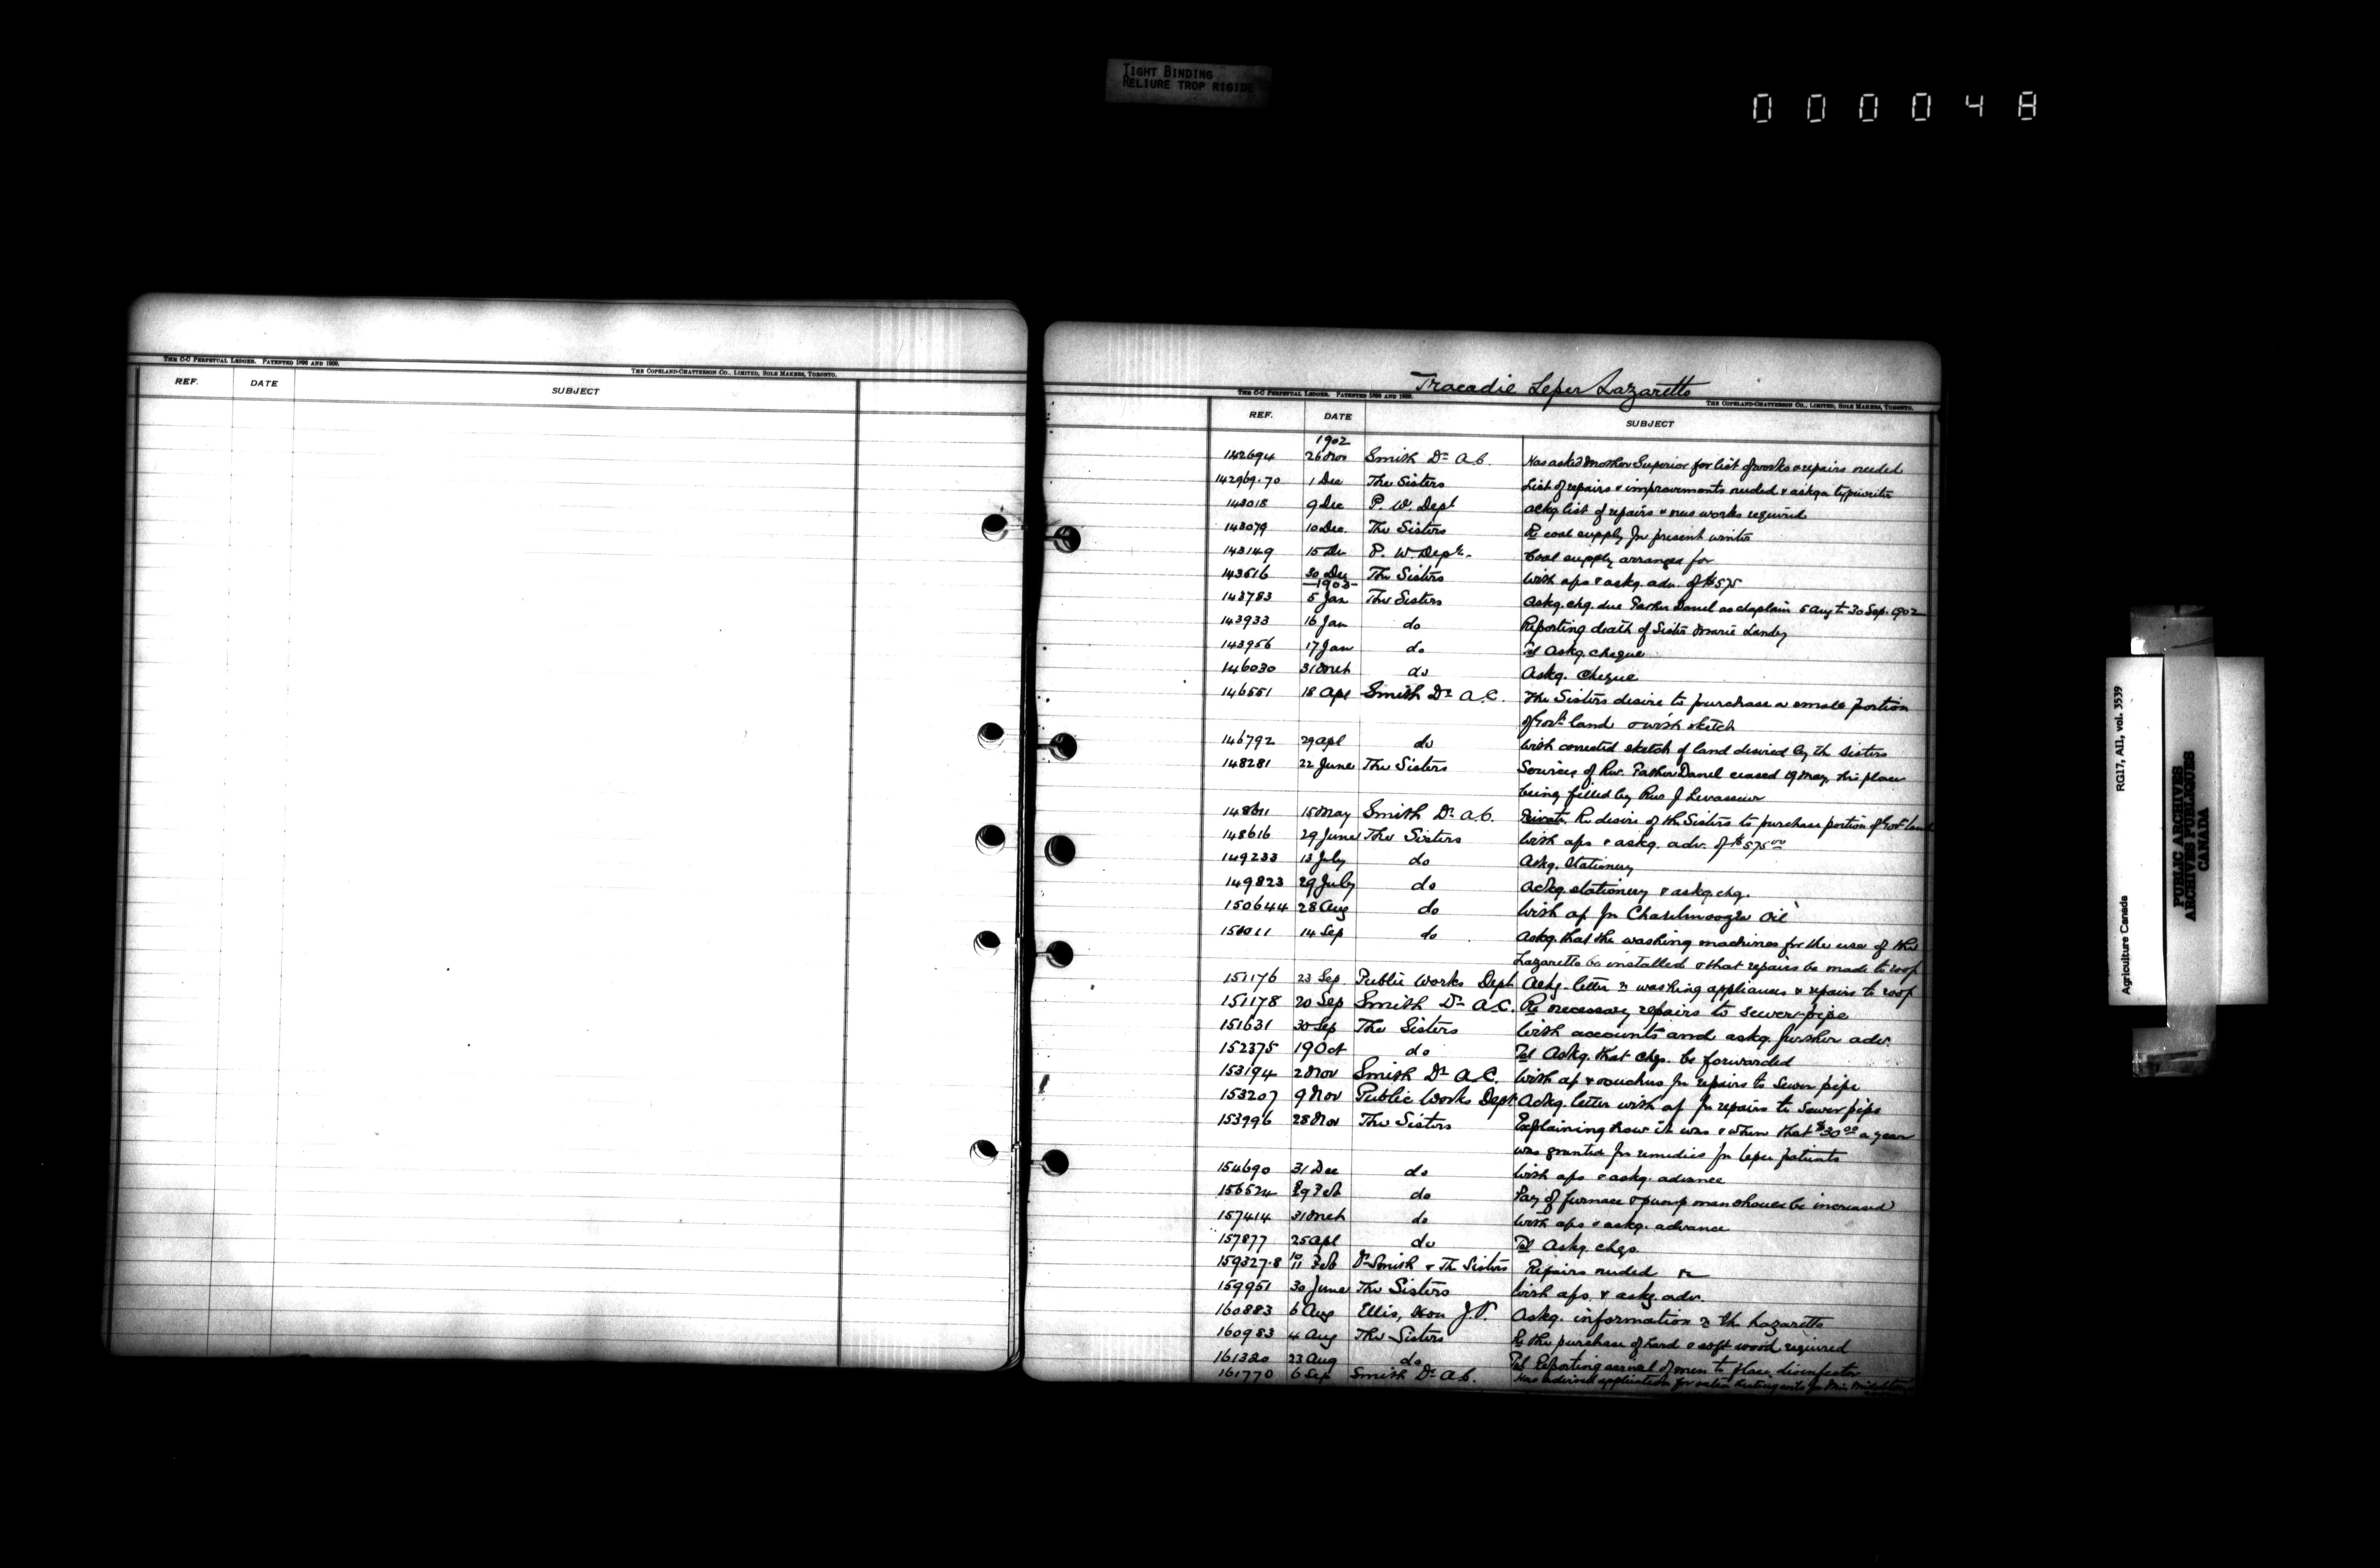 TIGHT BINDING
RELIURE TROP RIGIDE
000048
THE C-C PERPETUAL LEDGER. PATENTED 1896 AND 1900.
THE COPELAND-CHATTERSON CO., LIMITED, SOLE MAKERS, TORONTO.
REF. DATE SUBJECT
Tracadie Leper Lazaretto
THE C-C PERPETUAL LEDGER. PATENTED 1896 AND 1900.
THE COPELAND-CHATTERSON CO., LIMITED, SOLE MAKERS, TORONTO.
REF. DATE SUBJECT
1902
142694 26 Nov Smith Dr A.C. Has asked Mother Superior for list of works & repairs needed
142969.70 1 Dec The Sisters List of repairs & improvements needed & askg a typewriter
143018 9 Dec P. W. Dept ackg list of repairs & new works required
143079 10 Dec. The Sisters Re coal supply for present winter
143149 15 De P. W. Dept. Coal supply arranged for
143616 30 Dec The Sisters With aps & askg. adv. of $575
1903
143783 5 Jan The Sisters Askg. chq. due Father Danel as chaplain 5 Aug to 30 Sep. 1902
143933 16 Jan do Reporting death of Sister Marie Landry
143956 17 Jan do Tel Askg. cheque
146030 31 Mch do Askg. Cheque
146551 18 Apl Smith Dr A.C. The Sisters desire to purchase a small portion
of Govt land & with sketch
146792 29 apl do With corrected sketch of land desired by the Sisters
148281 22 June The Sisters Services of Rev. Father Danel ceased 19 May, his place
being filled by Rev J Levasseur
148611 15 May Smith Dr A.C. Private Re desire of the Sisters to purchase portion of Govt land
148616 29 June The Sisters With aps & askg. adv. of $575.00
149233 13 July do Askg. Stationery
149823 29 July do Ackg. stationery & askg. chq.
150644 28 Aug do With ap for Chaulmoogra Oil
14 Sep do Askg. that the washing machines for the use of the
Lazaretto be installed & that repairs be made to roof
151176 23 Sep. Public Works Dept Ackg. letter re washing appliances & repairs to roof
151178 20 Sep Smith Dr A.C. Re necessary repairs to sewer-pipe
151631 30 Sep The Sisters With accounts and askg. further adv.
152375 19 Oct do Tel Askg. that chqs. be forwarded
153194 2 Nov Smith Dr A.C. With ap & vouchers for repairs to sewer pipe
153207 9 Nov Public Works Dept Ackg. letter with ap for repairs to sewer pipe
153996 28 Nov The Sisters Explaining how it was & when that $30.00 a year
was granted for remedies for leper patients
154690 31 Dec do With aps & askg. advance
156524 29 Feb do Pay of furnace & pump man should be increased
157414 31 Mch do With aps & askg. advance
157877 25 apl do Tel Askg. chqs.
159327.8 10 11 Feb Dr Smith & The Sisters Repairs needed
159951 30 June The Sisters With aps. & askg. adv.
160883 6 Aug Ellis, Hon J.V. Askg. information re the Lazaretto
160983 4 Aug The Sisters Re the purchase of hard & soft wood required
161320 23 Aug do Tel Reporting arrival of men to place disinfector
161770 6 Sep Smith Dr A.C. Has advised application for
Agriculture Canada RG17, AII, vol. 3539
PUBLIC ARCHIVES
ARCHIVES PUBLIQUES
CANADA